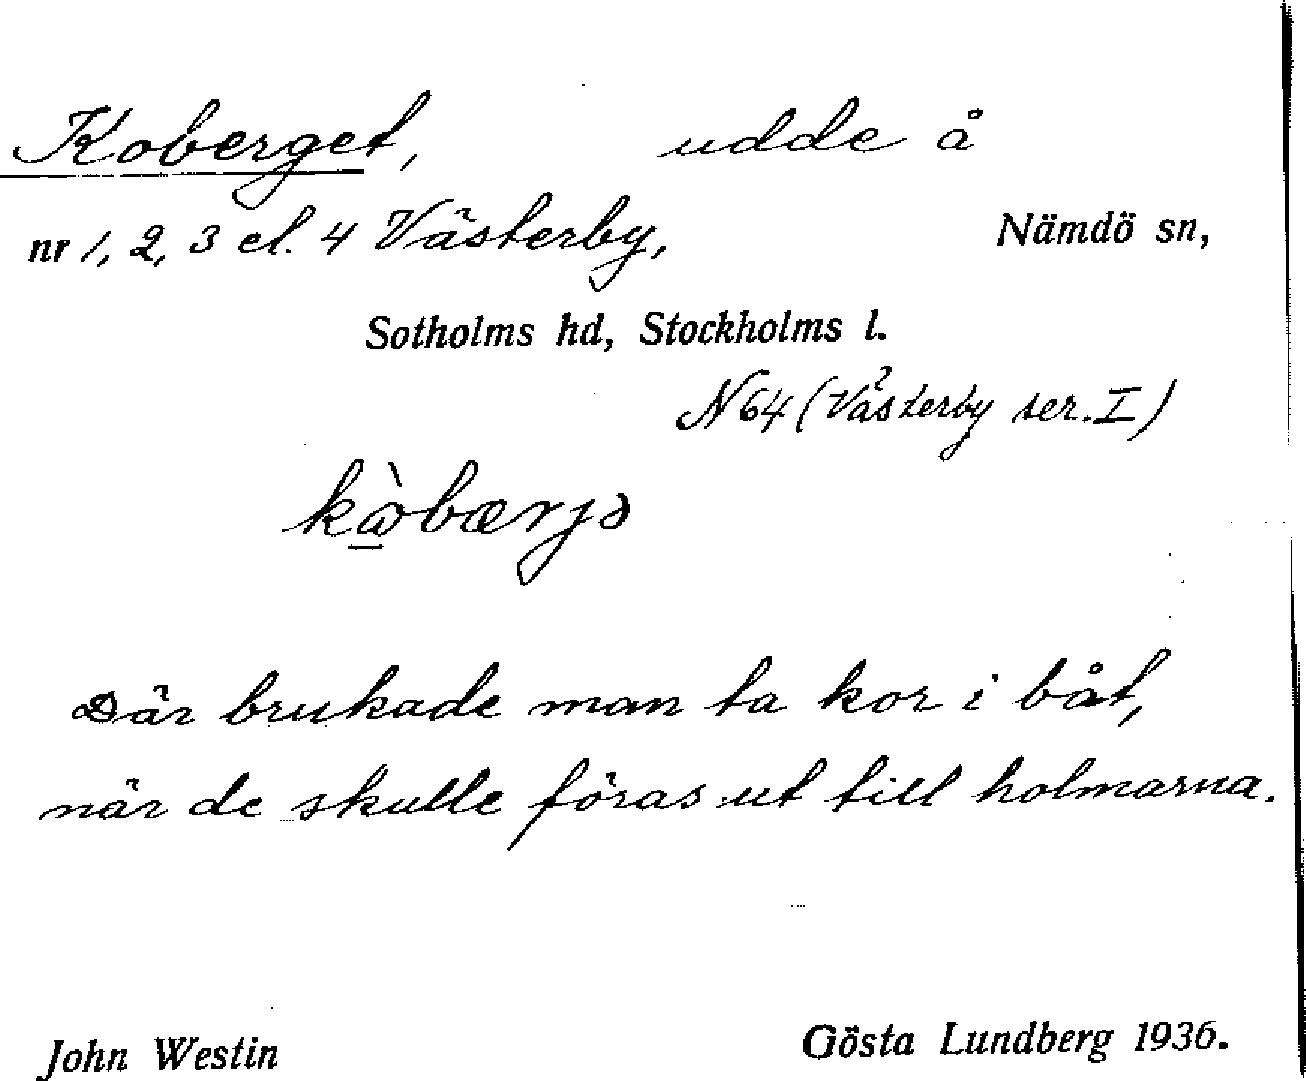 Koberget, udde å
nr 1, 2, 3 el. 4 Västerby, Nämdö sn,
Sotholms hd, Stockholms l.
N 64 (Västerby ser. I)
Där brukade man ta kor i båt,
när de skulle föras ut till holmarna.
John Westin Gösta Lundberg 1936.